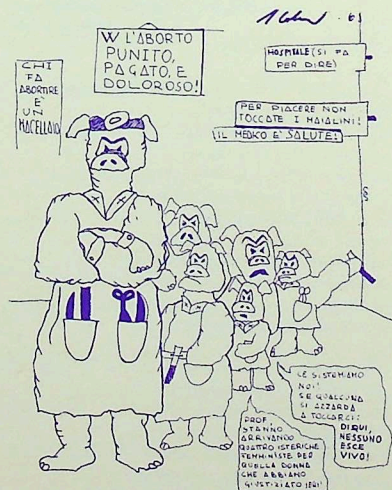 W L'ABORTO
PUNITO,
PAGATO, E
DOLOROSO!
HOSPITALE (SI FA
PER DIRE)
CHI
FA
ABORTIRE
È
UN
MACELLAIO
PER PIACERE NON
TOCCATE I MAIALINI!
IL MEDICO E' SALUTE!
LE SISTEMIAMO
NOI!
SE QUALCUNA
SI AZZARDA
A TOCCARCI
DI QUI,
NESSUNO
ESCE
VIVO!
PROF.
STANNO
ARRIVANDO
QUATTRO ISTERICHE
FEMMINISTE PER
QUELLA DONNA
CHE ABBIAMO
GIUSTIZIATO IERI!